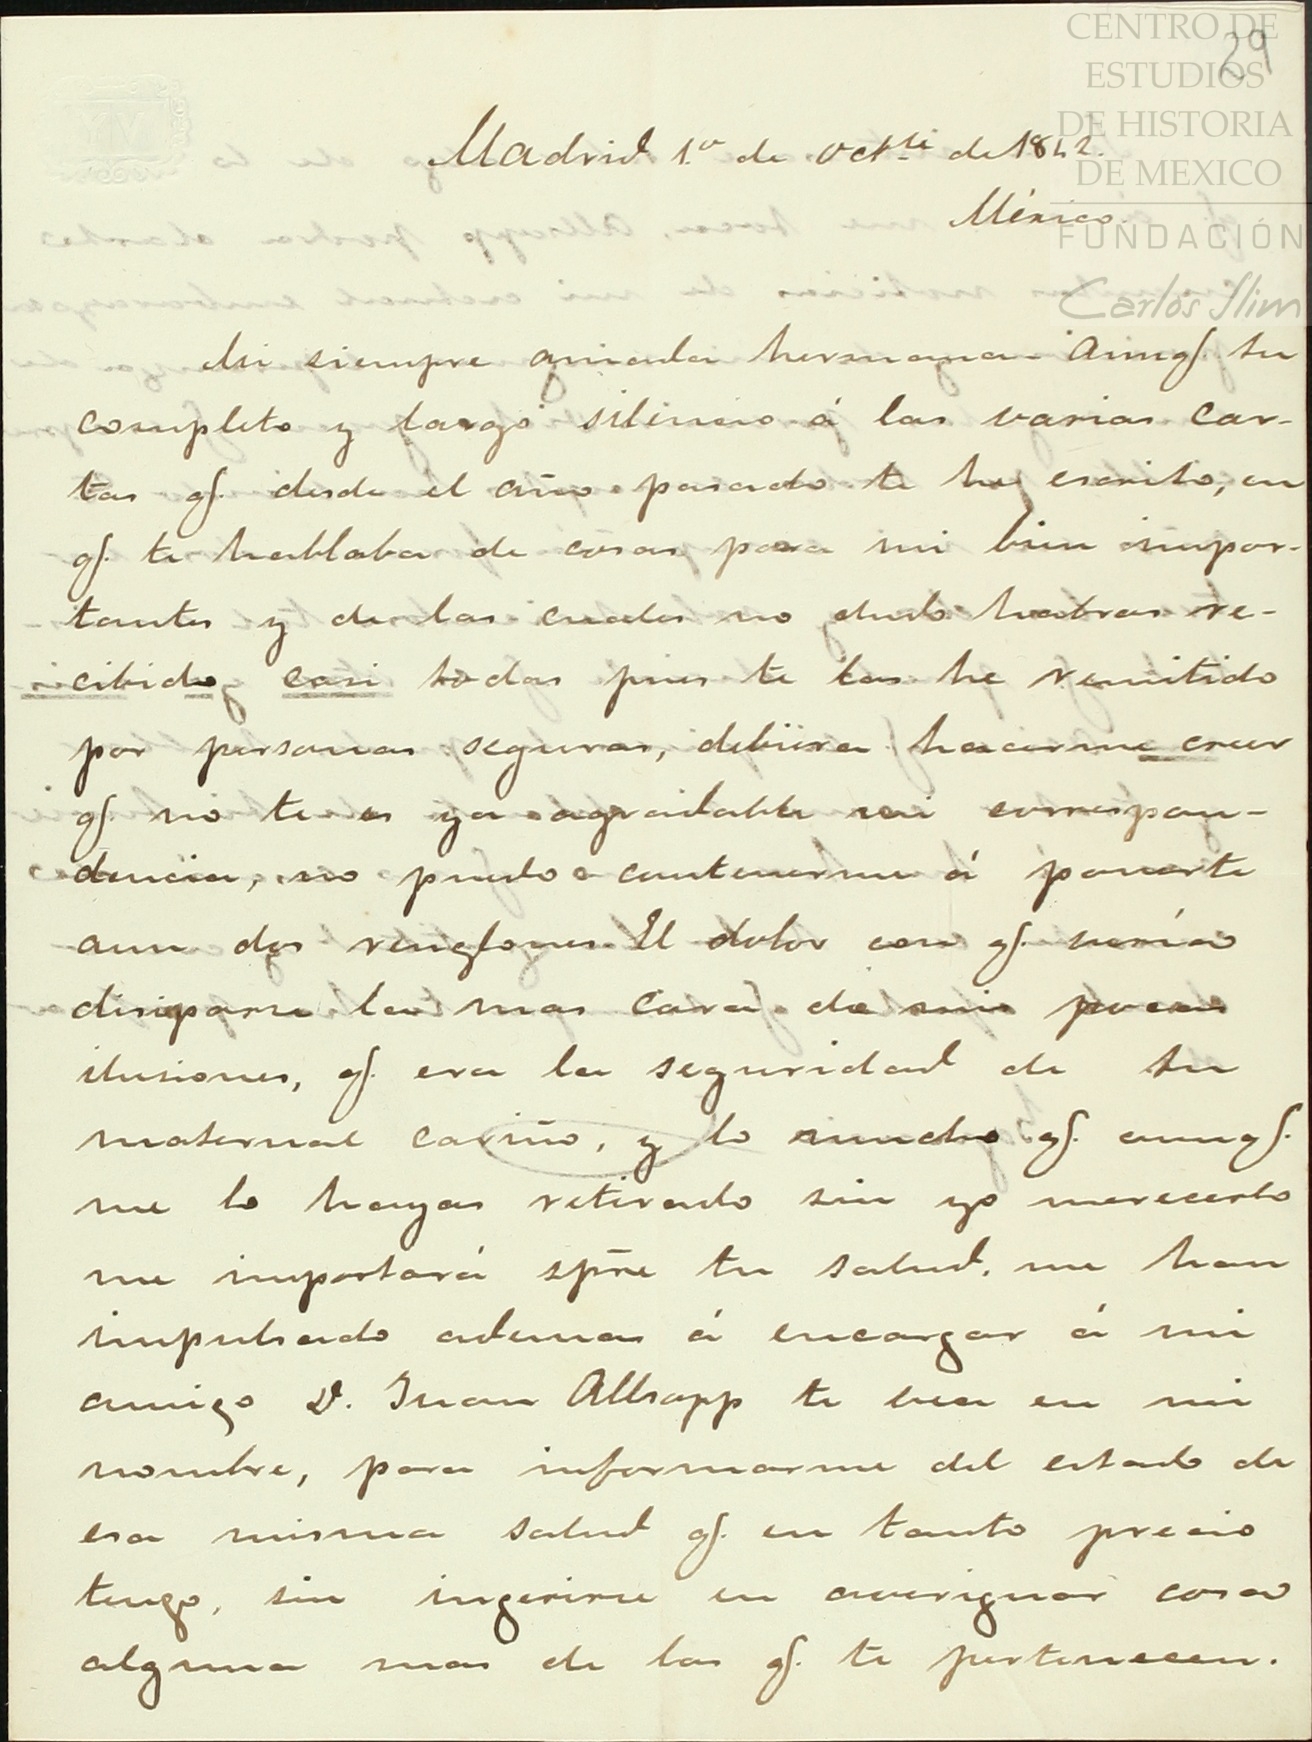 CENTRO DE
ESTUDIOS
DE HISTORIA
DE MEXICO
FUNDACIÓN
Carlos Slim
29
Madrid 1.º de oct.e de 1842.
México.
Mi siempre amada hermana. Aunq.e tu
completo y largo silencio á las varias car-
tas q.e desde el año pasado te he escrito, en
q.e te hablaba de cosas para mi bien impor-
tantes y de las cuales no dudo habras re-
cibido casi todas pues te las he remitido
por personas seguras, debiera hacerme creer
q.e no te es ya agradable mi correspon-
dencia, no puedo contenerme á ponerte
aun dos renglones. El dolor con q.e vería
disiparse la mas cara de mis pocas
ilusiones, q.e era la seguridad de tu
maternal cariño, y lo mucho q.e aunq.e
me lo hayas retirado sin yo merecerlo
me importará spre tu salud, me han
impulsado ademas á encargar á mi
amigo D. Juan Allsopp te vea en mi
nombre, para informarme del estado de
esa misma salud q.e en tanto precio
tengo, sin ingerirse en averiguar cosa
alguna mas de las q.e te pertenecen.